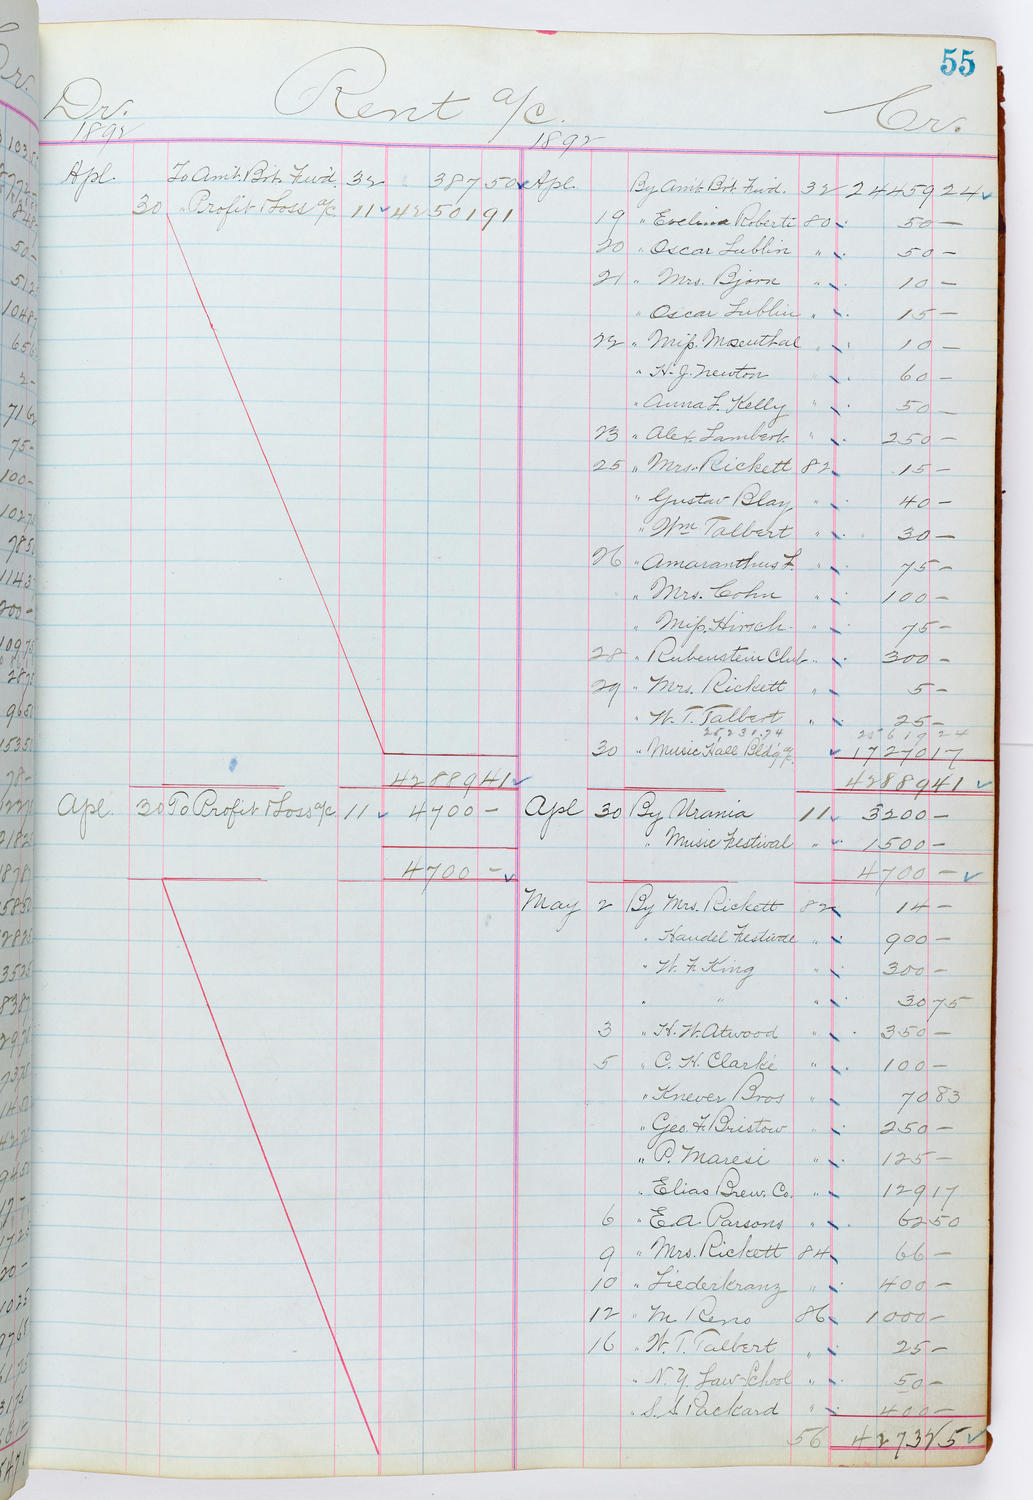 55
Dr. Rent a/c. Cr.
1892 1892
Apl. To Amt. Brt. Fwd. 32 387 50
30 " Profit & Loss a/c 11 42501 91
42889 41
Apl. 30 To Profit & Loss a/c 11 4700 -
4700 -
Apl. By Amt. Brt. Fwd. 32 24459 24
19 " Evelina Roberti 80 50 -
20 " Oscar Lublin " 50 -
21 " Mrs. Bjorn " 10 -
" Oscar Lublin " 15 -
22 " Miss. Mosenthal " 10 -
" H. J. Newton " 60 -
" Anna F. Kelly " 50 -
23 " Alex. Lambert " 250 -
25 " Mrs. Rickett 82 15 -
" Gustav Blay " 40 -
" Wm Talbert " 30 -
26 " Amaranthus L. " 75 -
" Mrs. Cohn " 100 -
" Miss. Hirsch. " 75 -
28 " Rubenstein Club " 300 -
29 " Mrs. Rickett " 5 -
" W. T. Talbert " 25 -
25,231.74 25619 24
30 " Music Hall Bldg a/c. 17270 17
42889 41
Apl 30 By Urania 11 3200 -
" Music Festival " 1500 -
4700 -
May 2 By Mrs. Rickett 82 14 -
" Handel Festival " 900 -
" W. F. King " 300 -
" " " 30 75
3 " H. W. Atwood " 350 -
5 " C. H. Clarke " 100 -
" Knever Bros " 70 83
" Geo. F. Bristow " 250 -
" P. Maresi " 125 -
" Elias Brew. Co. " 129 17
6 " E. A. Parsons " 62 50
9 " Mrs. Rickett 84 66 -
10 " Liederkranz " 400 -
12 " M. Reno 86 1000 -
16 " W. T. Talbert " 25 -
" N. Y. Law School " 50 -
" S. S. Packard " 400 -
56 4273 25